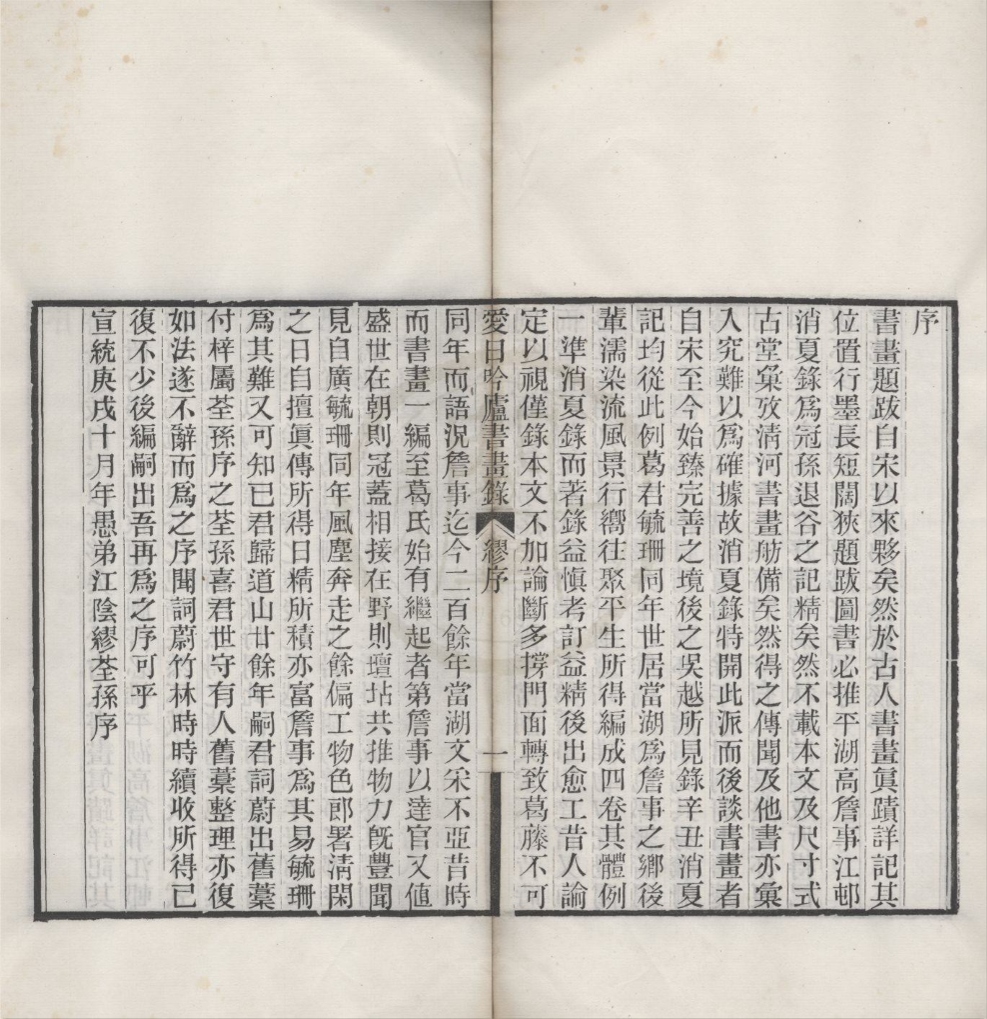 序
書畫題跋自宋以來夥矣然於古人書畫眞蹟詳記其
位置行墨長短闊狹題跋圖書必推平湖高詹事江邨
消夏錄爲冠孫退谷之記精矣然不載本文及尺寸式
古堂彙攷淸河書畫舫備矣然得之傳聞及他書亦彙
入究難以爲確據故消夏錄特開此派而後談書畫者
自宋至今始臻完善之境後之吳越所見錄辛丑消夏
記均從此例葛君毓珊同年世居當湖爲詹事之鄉後
輩濡染流風景行嚮往聚平生所得編成四卷其體例
一準消夏錄而著錄益愼考訂益精後出愈工昔人論
定以視僅錄本文不加論斷多撐門面轉致葛藤不可
愛日吟廬書畫錄 繆序 一
同年而語況詹事迄今二百餘年當湖文采不亞昔時
而書畫一編至葛氏始有繼起者第詹事以達官又値
盛世在朝則冠蓋相接在野則壇坫共推物力旣豐聞
見自廣毓珊同年風塵奔走之餘偏工物色郎署淸閑
之日自擅眞傳所得日精所積亦富詹事爲其易毓珊
爲其難又可知已君歸道山廿餘年嗣君詞蔚出舊藁
付梓屬荃孫序之荃孫喜君世守有人舊藁整理亦復
如法遂不辭而爲之序聞詞蔚竹林時時續收所得已
復不少後編嗣出吾再爲之序可乎
宣統庚戌十月年愚弟江陰繆荃孫序